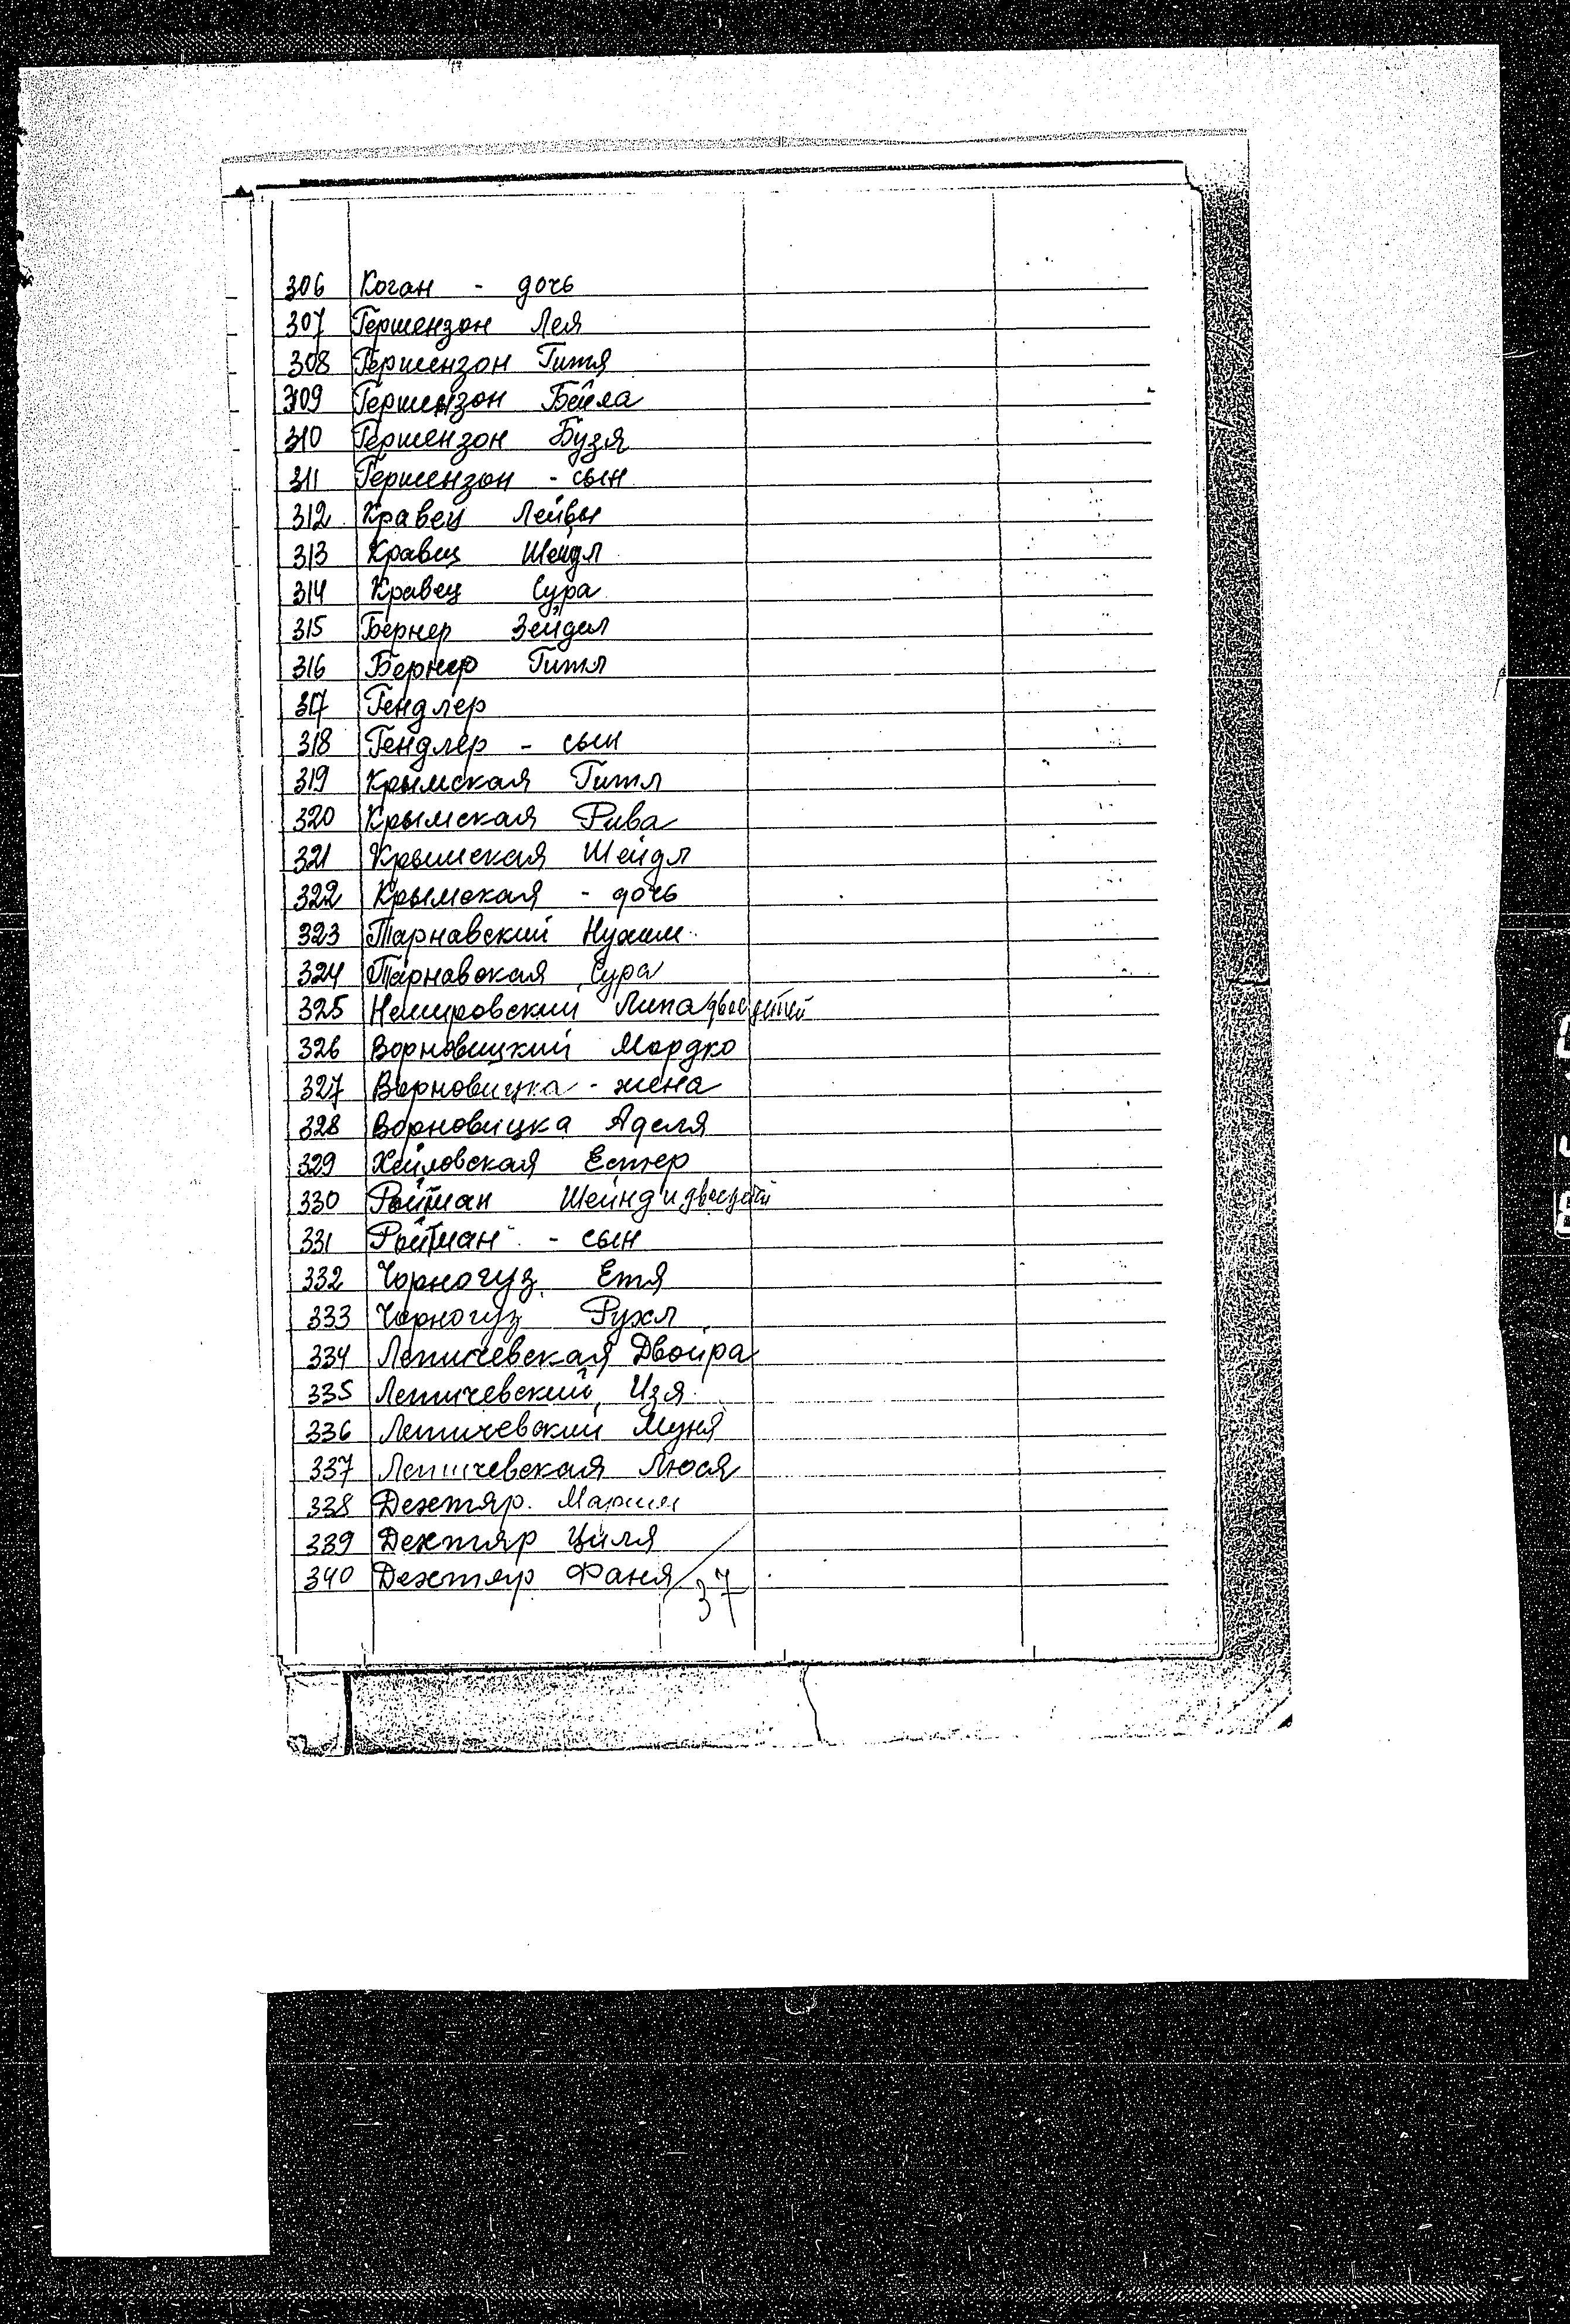 306 Коган - дочь
307 Гершензон Лея
308 Гершензон Гитя
309 Гершензон Бейла
310 Гершензон Бузя
311 Гершензон - сын
312 Кравец Лейвы
313 Кравец Шейдл
314 Кравец Сура
315 Бернер Зейдел
316 Бернер Гитл
317 Гендлер
318 Гендлер - сын
319 Крымская Гитл
320 Крымская Рива
321 Крымская Шейдл
322 Крымская - дочь
323 Тарнавский Нухим
324 Тарнавская Сура
325 Немировский Липа двое детей
326 Ворновицкий Мордко
327 Ворновицка - жена
328 Ворновицка Аделя
329 Хейловская Естер
330 Ройтман Шейнд и двое детей
331 Ройтман - сын
332 Чорногуз Етя
333 Чорногуз Рухл
334 Летичевская Двойра
335 Летичевский Изя
336 Летичевский Муня
337 Летичевская Люся
338 Дехтяр
339 Дехтяр Циля
340 Дехтяр Фаня
37